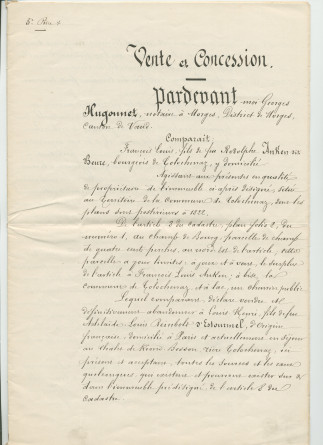 Vente et Concession.
Pardevant moi Georges
Hugonnet, notaire à Morges, District de Morges,
Canton de Vaud.
Comparaît
François Louis, fils de feu Rodolphe,
bourgeois de Tolochenaz, y domicilié
Agissant aux présentes en qualité
de propriétaire de l'immeuble ci après désigné, situé
au territoire de la commune de Tolochenaz, sous les
plans dont
De l'article 2 du cadastre, plan folio 2, du
numéro 1, au champ de Bourg, parcelle de champ
de quatre cent perches au de l'article, cette
parcelle a pour limites: à et à vent, le surplus
de l'article à François Louis; à bise, la
commune de Tolochenaz, et à lac, un chemin public
Lequel comparant déclare vendre et
définitivement abandonner à Louis Henri, fils de feu
Adelaïde Louis d'Estournel, d'origine
française, domicilié à Paris et actuellement en séjour
au chalet de Bosson, Tolochenaz, ici
présent et acceptant, toutes les sources et les eaux
quelconques qui existent et pourront exister sur et
dans l'immeuble pré désigné de l'article 2 du
cadastre.